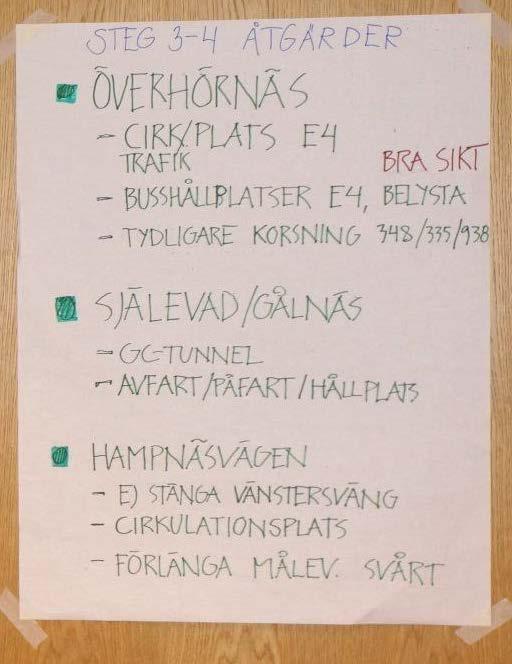 STEG 3-4 ÅTGÄRDER
ÖVERHÖRNÄS
- CIRK/PLATS E4
TRAFIK
BRA SIKT
- BUSSHÅLLPLATSER E4, BELYSTA
- TYDLIGARE KORSNING 348/335/938
SJÄLEVAD/GÅLNÄS
- GC-TUNNEL
- AVFART/PÅFART/HÅLLPLATS
HAMPNÄSVÄGEN
- EJ STÄNGA VÄNSTERSVÄNG
- CIRKULATIONSPLATS
- FÖRLÄNGA MÅLEV. SVÅRT